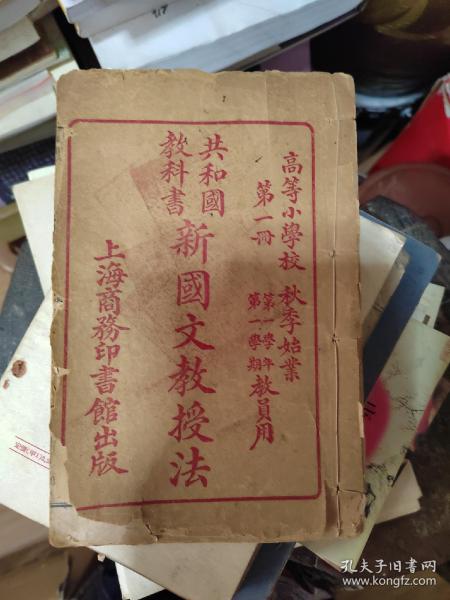 高等小學校 秋季始業
第一冊
第一學年
第一學期
教員用
共和國
教科書
新國文教授法
上海商務印書館出版
孔夫子旧书网
www.kongfz.com